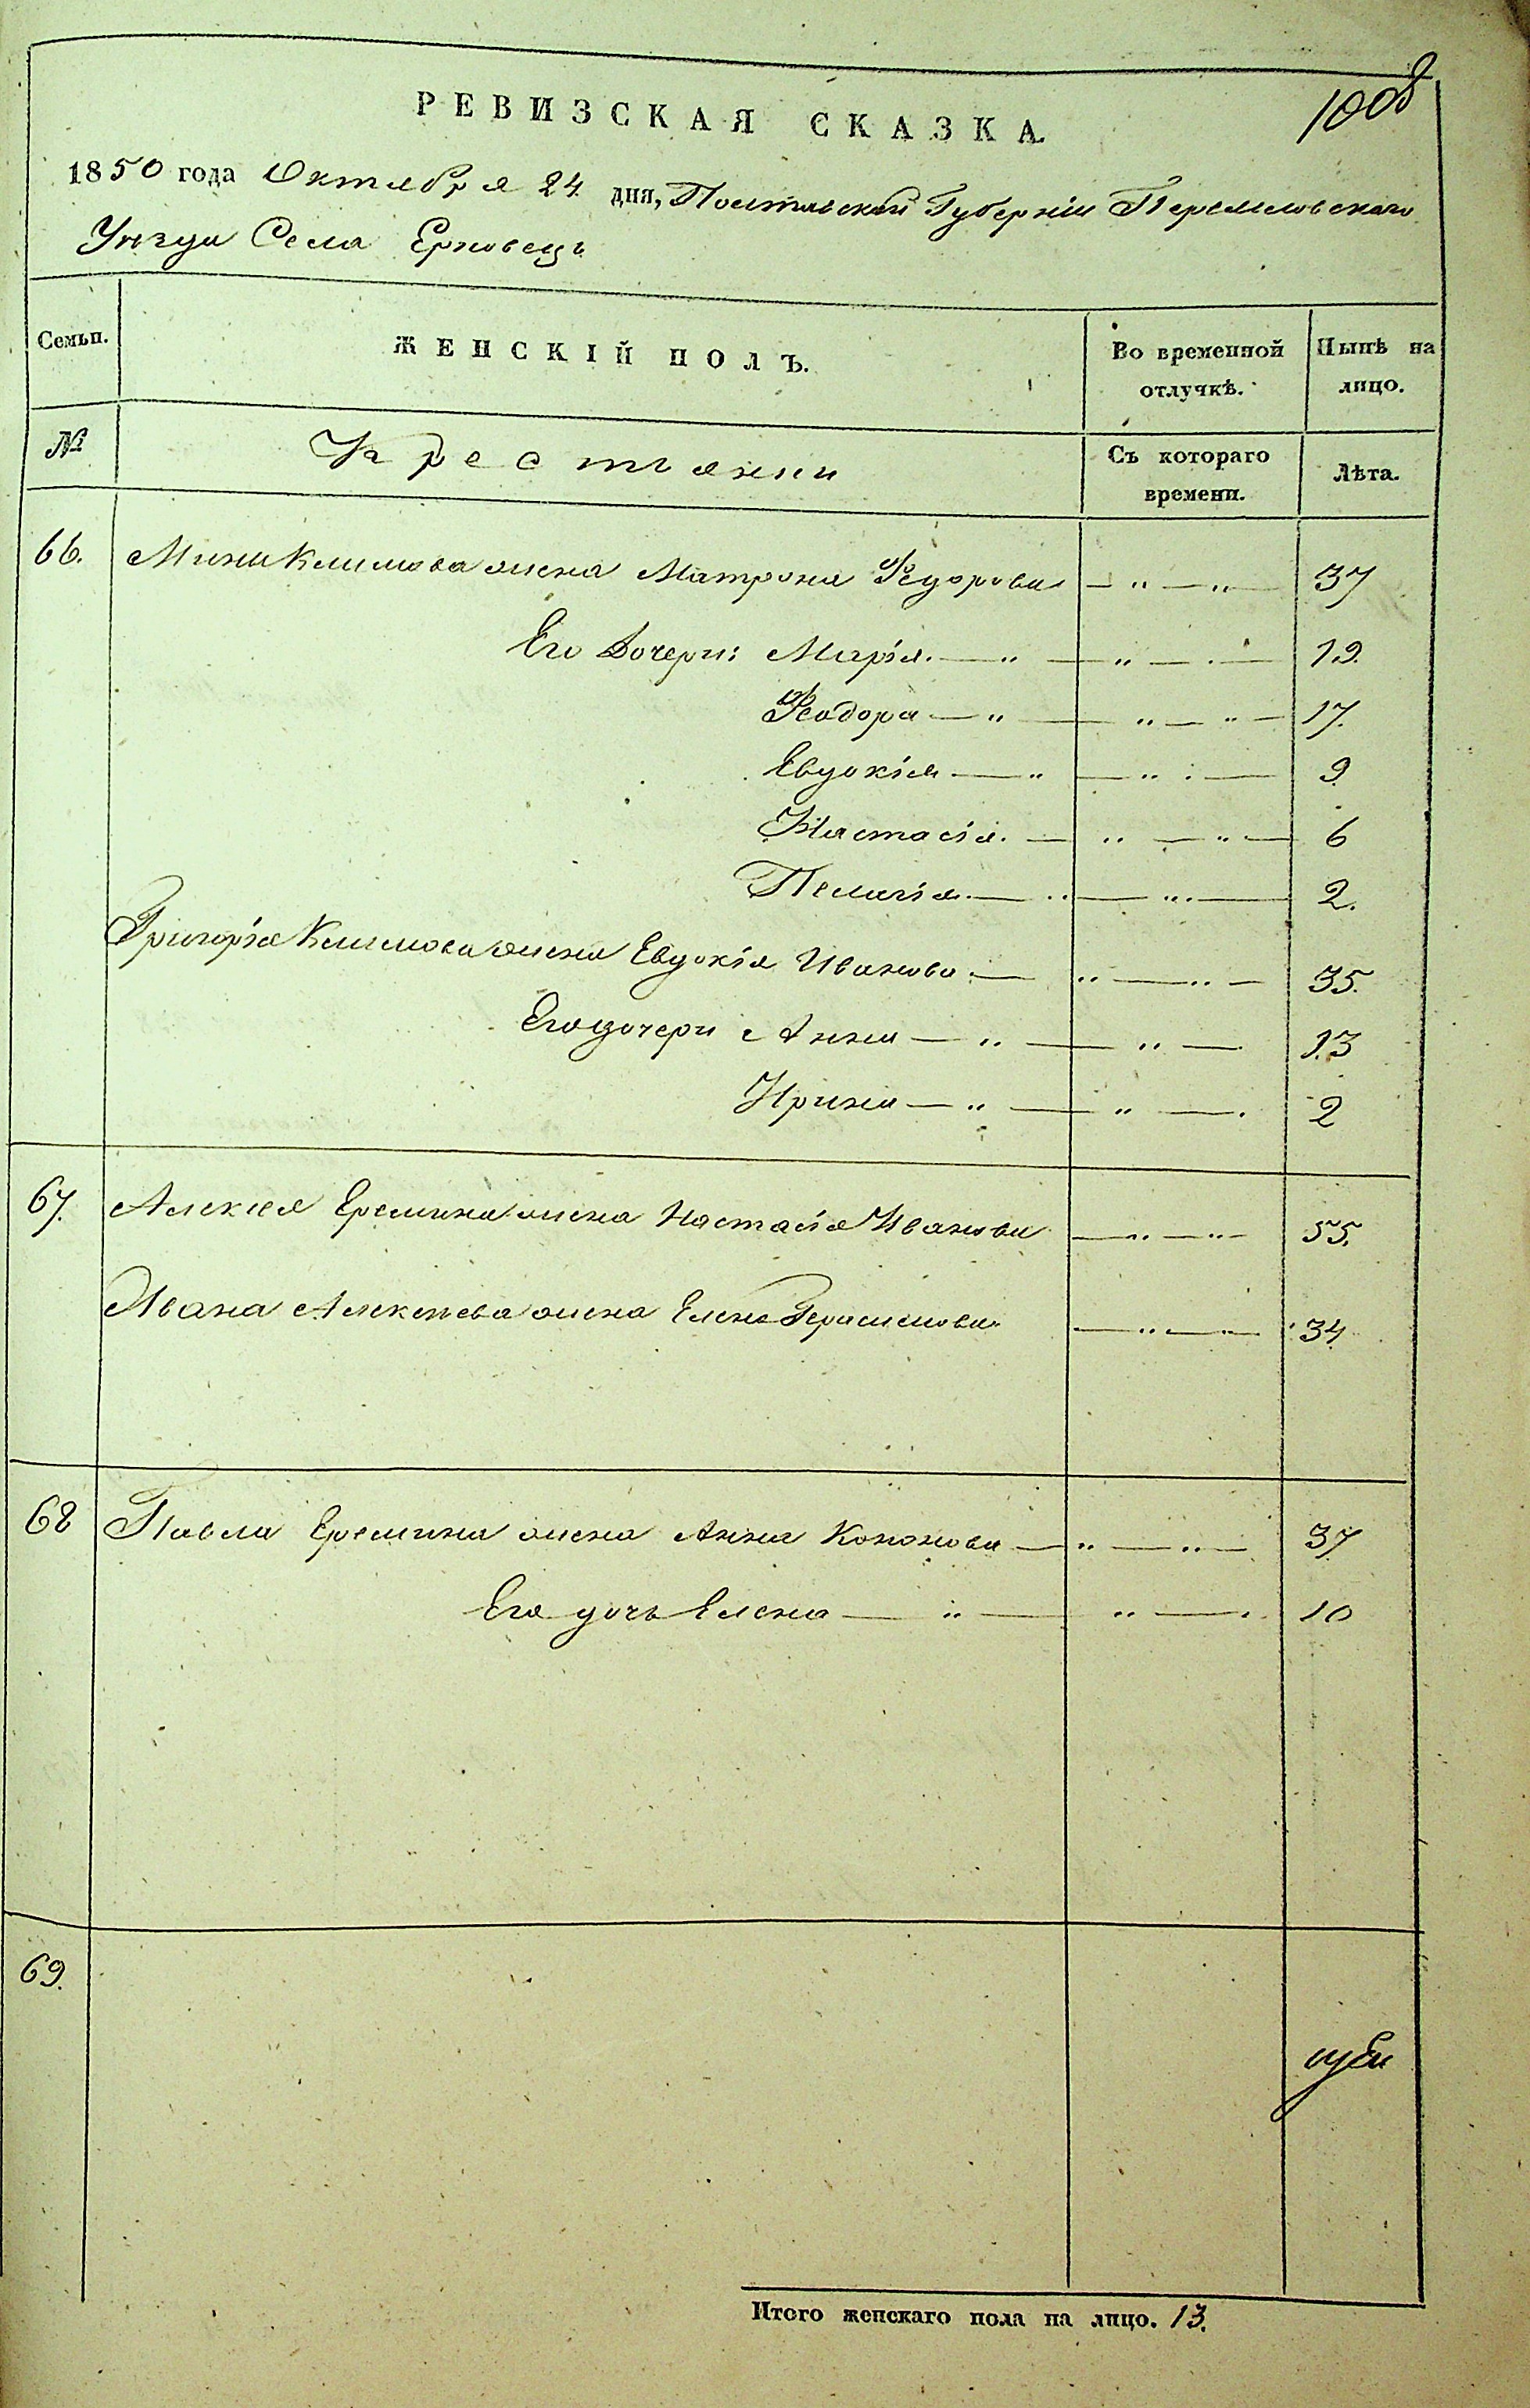 1008
РЕВИЗСКАЯ СКАЗКА
1850 года Октября 24 дня, Полтавской Губерніи Переяславскаго
Уѣзда Села Ерковецъ
Семьи. ЖЕНСКІЙ ПОЛЪ. Во временной отлучкѣ. Нынѣ на лицо.
№ Крестьяни Съ котораго времени. Лѣта.
66. Мины Климова жена Матрона Федорова — " — " — 37
Его Дочери: Марія. — " — " — . — 19.
Феодора — " — " — " — 17.
Евдокія — " — " . — 9
Настасія. — " — " — 6
Пелагія. — " — " — 2.
Григорія Климова жена Евдокія Иванова — " — " — 35.
Его дочери Анна — " — " — 13
Ирина — " — " — . 2
67. Алексѣя Еремина жена Настасія Иванова — " — " — 55.
Ивана Алексѣева жена Елена Герасимова — " — " — 34
68 Павла Еремина жена Анна Кононова — " — " — 37
Его дочь Елена — " — " — . 10
69.
Итого женскаго пола на лицо. 13.